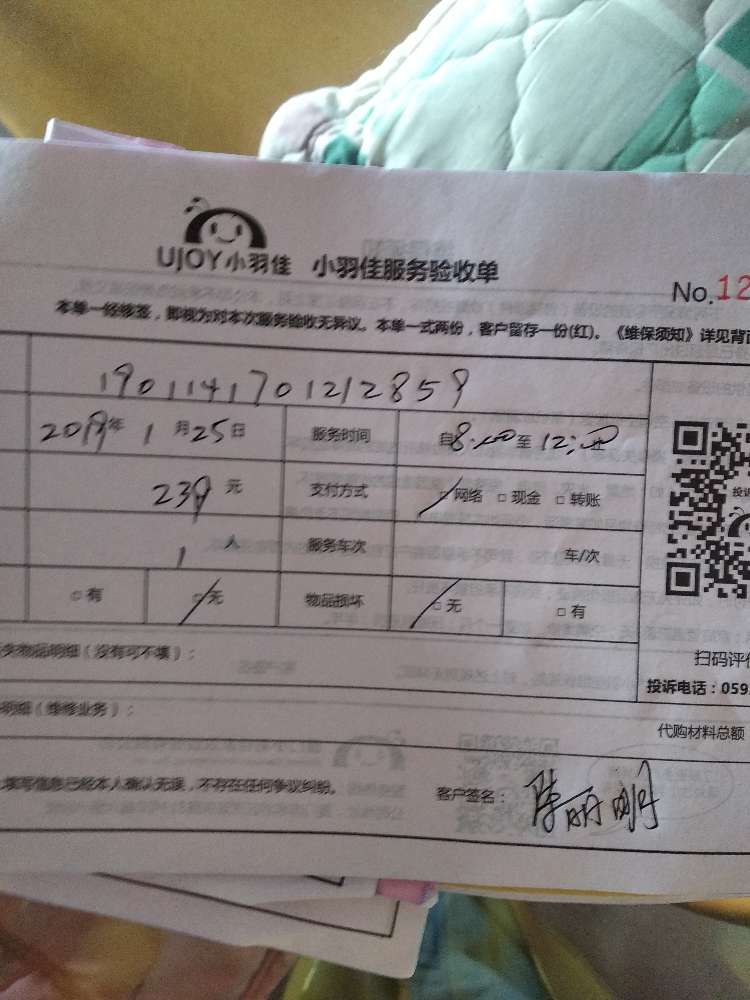 UJOY小羽佳 小羽佳服务验收单
No.12
本单一经修签，即视为对本次服务验收无异议。本单一式两份，客户留存一份(红)。《维保须知》详见背面
1901141701212859
2019年 1月25日 服务时间 自8:00至12:00
239元 支付方式 □网络 □现金 □转账
1人 服务车次 车/次
□有 □无 物品损坏 □无 □有
物品明细（没有可不填）：
扫码评价
投诉电话：059
明细（维修业务）：
代购材料总额
填写信息已经本人确认无误，不存在任何争议纠纷。 客户签名：陈丽明